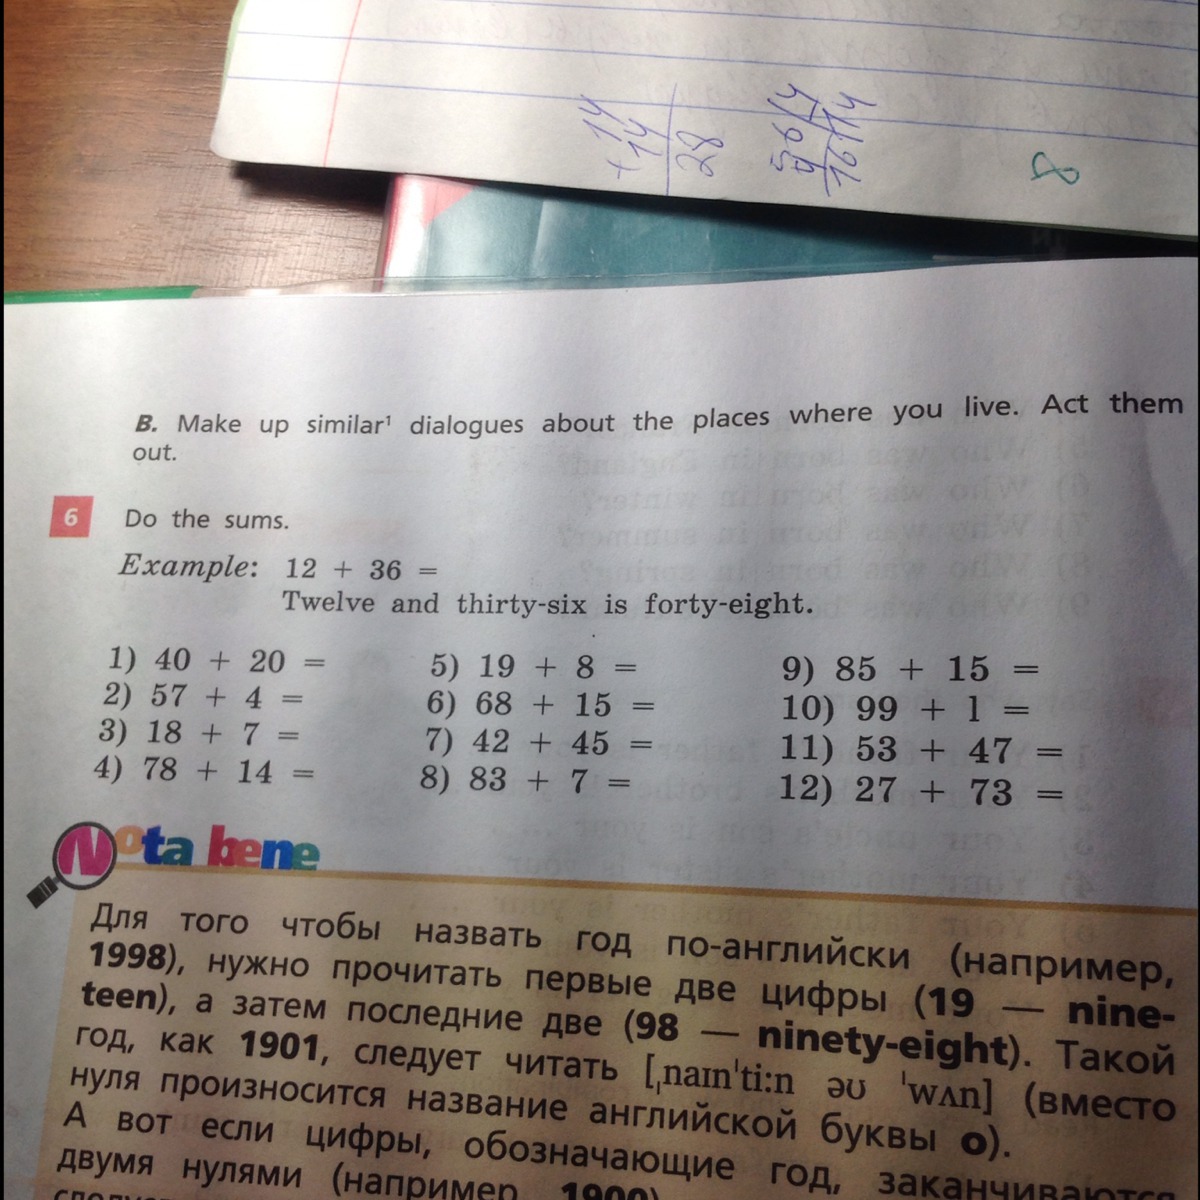 + 14
14
28
56 14
4
16 14
8
B. Make up similar¹ dialogues about the places where you live. Act them
out.
6 Do the sums.
Example: 12 + 36 =
Twelve and thirty-six is forty-eight.
1) 40 + 20 =
2) 57 + 4 =
3) 18 + 7 =
4) 78 + 14 =
5) 19 + 8 =
6) 68 + 15 =
7) 42 + 45 =
8) 83 + 7 =
9) 85 + 15 =
10) 99 + 1 =
11) 53 + 47 =
12) 27 + 73 =
Nota bene
Для того чтобы назвать год по-английски (например,
1998), нужно прочитать первые две цифры (19 — nine-
teen), а затем последние две (98 — ninety-eight). Такой
год, как 1901, следует читать [ˌnaɪn'ti:n əʊ 'wʌn] (вместо
нуля произносится название английской буквы o).
А вот если цифры, обозначающие год, заканчиваются
двумя нулями (например, 1900),